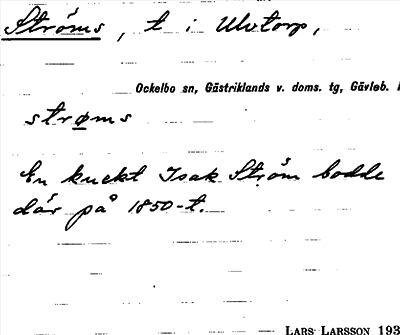 Ströms, t i Ulvtorp,
Ockelbo sn, Gästriklands v. doms. tg, Gävleb.
strøms
En knekt Isak Ström bodde
där på 1850-t.
LARS LARSSON 193